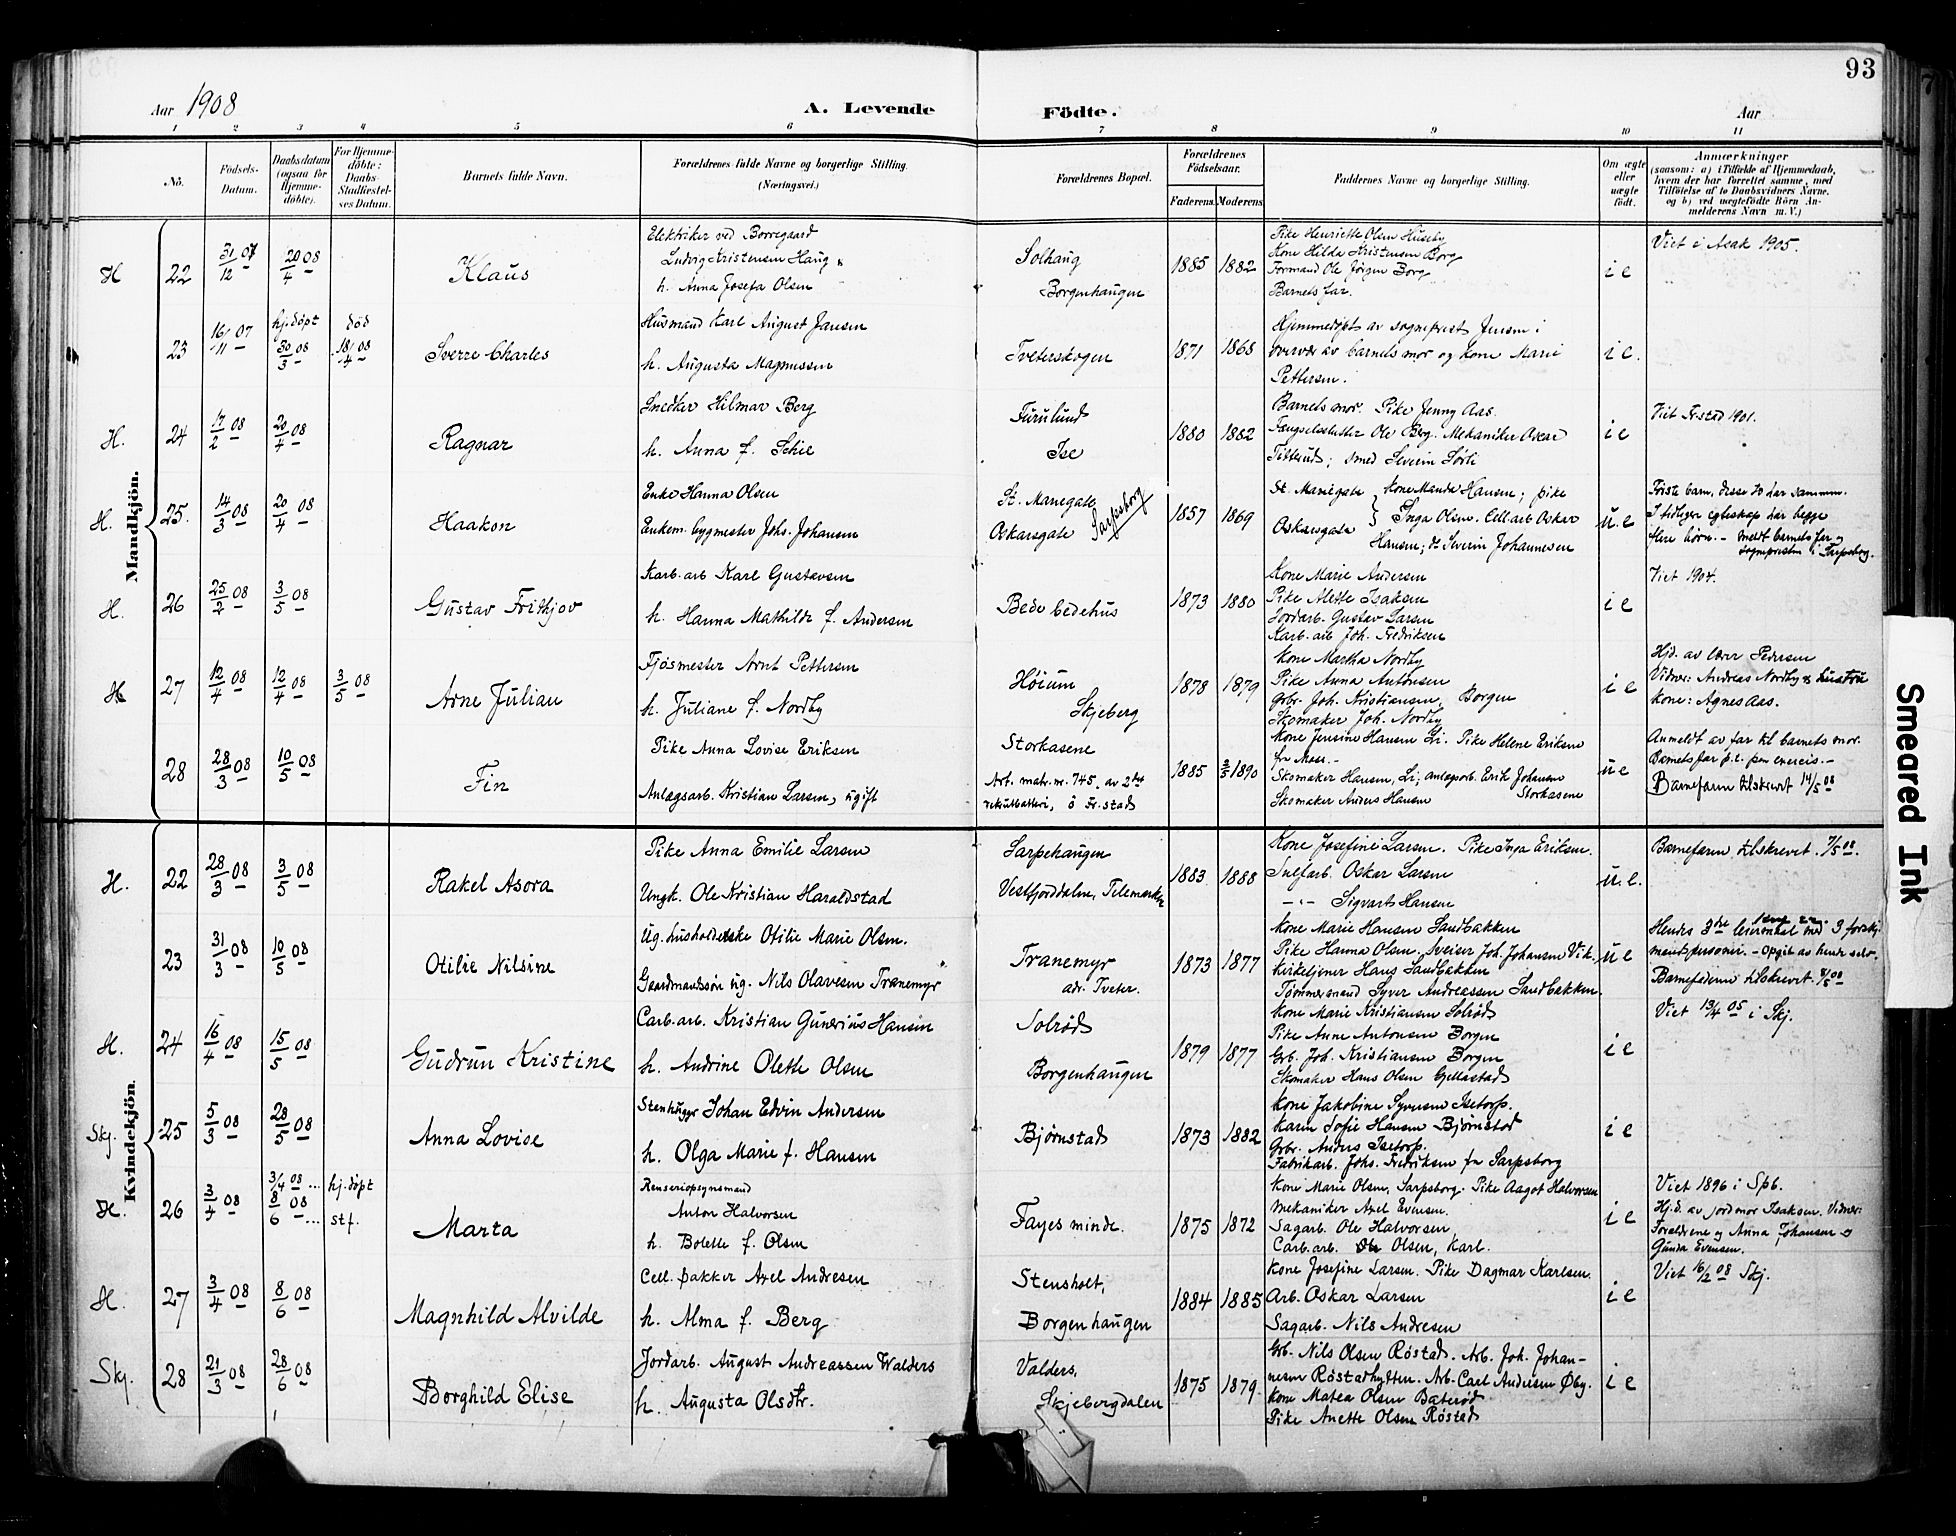 93
Aar 1908
A. Levende Födte.
Aar
1 2 3 4 5 6 7 8 9 10 11
No.
Födsels-Datum.
Daabsdatum (ogsaa for Hjemme-döbte).
For Hjemme-döbte: Daabs-Stadfæstel-ses Datum.
Barnets fulde Navn.
Forældrenes fulde Navne og borgerlige Stilling. (Næringsvei.)
Forældrenes Bopæl.
Forældrenes Födselsaar.
Faderens. Moderens.
Faddernes Navne og borgerlige Stilling.
Om ægte eller uægte födt.
Anmærkninger
(saasom: a) i Tilfælde af Hjemmedaab, hvem der har forrettet samme, med Tilföielse af to Daabsvidners Navne, og b) ved uægtefödte Börn An-melderens Navn m. V.)
Mandkjön.
H 22 31/12 07 20/4 08 Klaus
Elektriker ved Borregaard
Ludvig Kristensen Haug
h. Anna Josefa Olsen
Solhaug
Borgenhaugen
1885 1882
Pike Henriette Olsen Huseby
Kone Hilda Kristensen Borg
Formand Ole Jörgen Borg
Barnets far.
i e
Viet i Asak 1905.
23 16/11 07 hj.döpt 30/3 08 död 18/4 08 Sverre Charles
Husmand Karl August Jansen
h. Augusta Magnussen
Tveterskogen
1871 1868
Hjemmedöpt av sogneprest Jensen i
overvær av barnets mor og kone Marie
Pettersen.
i e.
H. 24 17/2 08 20/4 08 Ragnar
Snedker Hilmar Berg
h. Anna f. Schie
Furulund
Ise
1880 1882
Barnets mor. Pike Jenny Aas.
Fængselsslutter Ole Berg. Mekaniker Oscar
Titterud; smed Severin Sörli
i e
Viet Fr.stad 1901.
H. 25. 14/3 08 20/4 08 Haakon
Enke Hanna Olsen
Enkem. bygmester Johs. Johansen
St. Mariegate
Oskarsgate Sarpsborg
1857 1869
St. Mariegate Kone Manda Hansen; pike
Oskarsgate Inga Olsen. Cell.arb Oskar
Hansen; do Severin Johannesen
u. e
Förste barn, disse to har sammen.
I tidligere egteskap har begge
flere börn. – meldt barnets far og
sognepresten i Sarpsborg.
H. 26 25/2 08 3/5 08 Gustav Fritkjov
Karb. arb Karl Gustavsen
h. Hanna Mathilde f. Andersen
Bede bedehus
1873 1880
Kone Marie Andersen
Pike Alette Isaksen
Jordarb. Gustav Larsen
Karb. arb Joh. Fredriksen
i e
Viet 1904.
H 27 12/4 08 12/4 08 3/5 08 Arne Julian
Fjösmester Arnt Pettersen
h. Juliane f. Nordby
Höium
Skjeberg
1878 1879
Kone Martha Nordby
Pike Anna Antonsen
Grbr. Joh. Kristiansen, Borgen
Skomaker Joh. Nordby
i e
Hjd. av lærer Pedersen
Vidner: Andreas Nordby og hustru
Kone: Agnes Aas.
28 28/3 08 10/5 08 Fin
Pike Anna Lovise Eriksen
Anlægsarb. Kristian Larsen, ugift
Storkasene
Art. matr. nr. 745. av 2det
rekutbatteri, ö Fr.stad
1885 2/5 1890
Kone Jensine Hansen Li. Pike Helene Eriksen
fra Moss. –
Skomaker Hansen, Li; anlægsarb. Erik Johansen
Storkasene
Skomaker Anders Hansen
u e
Anmeldt av far til barnets mor.
Barnets far p.t. paa exercis. –
Barnefaren tilskrevet 14/5 08
Kvindekjön.
H. 22 28/3 08 3/5 08 Rakel Asora
Pike Anna Emilie Larsen
Ungk. Ole Kristian Haraldstad
Sarpehaugen
Vestfjorddalen, Telemarken
1883 1888
Kone Josefine Larsen. Pike Inga Eriksen.
Sulfarb. Oskar Larsen
–"– Sigvart Hansen
u. e.
Barnefaren tilskrevet. 7/5 08.
23 31/3 08 10/5 08 Otilie Nilsine
Ug. husholderske Otilie Marie Olsen.
Gaardmandssön ug. Nils Olavesen Tranemyr
Tranemyr
adr. Tveter.
1873 1877
Kone Marie Hansen Sandbakken
Pike Hanna Olsen. Sveiser Joh. Johansen Vik.
Kirketjener Hans Sandbakken
Tömmermand Syver Andreassen Sandbakken.
u e
Hendes 3die leiermaal med 3 forskj.
mandspersoner. – Opgit av hende selv.
Barnefaderen tilskrevet. 8/5 08
H. 24 16/4 08 15/5 08 Gudrun Kristine
Carb. arb. Kristian Gunerius Hansen
h. Andrine Olette Olsen
Solröd
Borgenhaugen
1879 1877
Kone Marie Kristiansen Solröd
Pike Anne Antonsen Borgen
Grb. Joh. Kristiansen Borgen
Skomaker Hans Olsen Gellastad
i e
Viet 13/4 05 i Skj.
Skj. 25 5/3 08 28/5 08 Anna Lovise
Stenhugger Johan Edvin Andersen
h. Olga Marie f. Hansen
Bjørnstad
1873 1882
Kone Jakobine Syversen Isetorp.
Karen Sofie Hansen Bjørnstad
Grbr. Anders Isetorp.
Fabrikarb. Johs. Fredriksen fra Sarpsborg
i e
H. 26 3/4 08 3/4 08 ... hj. döpt 8/6 08 ... stf. Marta
Renseriopsynsmand
Anton Halvorsen
h. Bolette f. Olsen
Fayes minde.
1875 1872
Kone Marie Olsen, Sarpsborg. Pike Aagot Halvorsen
Mekaniker Axel Evensen.
Sagarb. Ole Halvorsen
Carb. arb. Olsen, Karl.
i e
Viet 1896 i Spb.
Hj.d. av jordmor Isaksen. Vidner:
Forældrene og Anna Johansen og
Gunda Evensen.
H. 27 3/4 08 8/6 08 Magnhild Alvilde
Cell. pakker Axel Andresen
h. Alma f. Berg
Stensholt,
Borgenhaugen
1884 1885
Kone Josefine Larsen. Pike Dagmar Karlsen.
Arb. Oskar Larsen
Sagarb. Nils Andresen
i e
Viet 16/2 08 Skj.
Skj. 28 21/3 08 28/6 08 Borghild Elise
Jordarb. August Andreassen Walders
h. Augusta Olsdtr.
Valders,
Skjebergdalen
1875 1879
Grb. Nils Olsen Röstad. Arb. Joh. Johan-
nesen Röstadhytten. Arb. Carl Andersen Öby.
Kone Matea Olsen Baterød
Pike Anette Olsen Röstad
i e
Smeared Ink